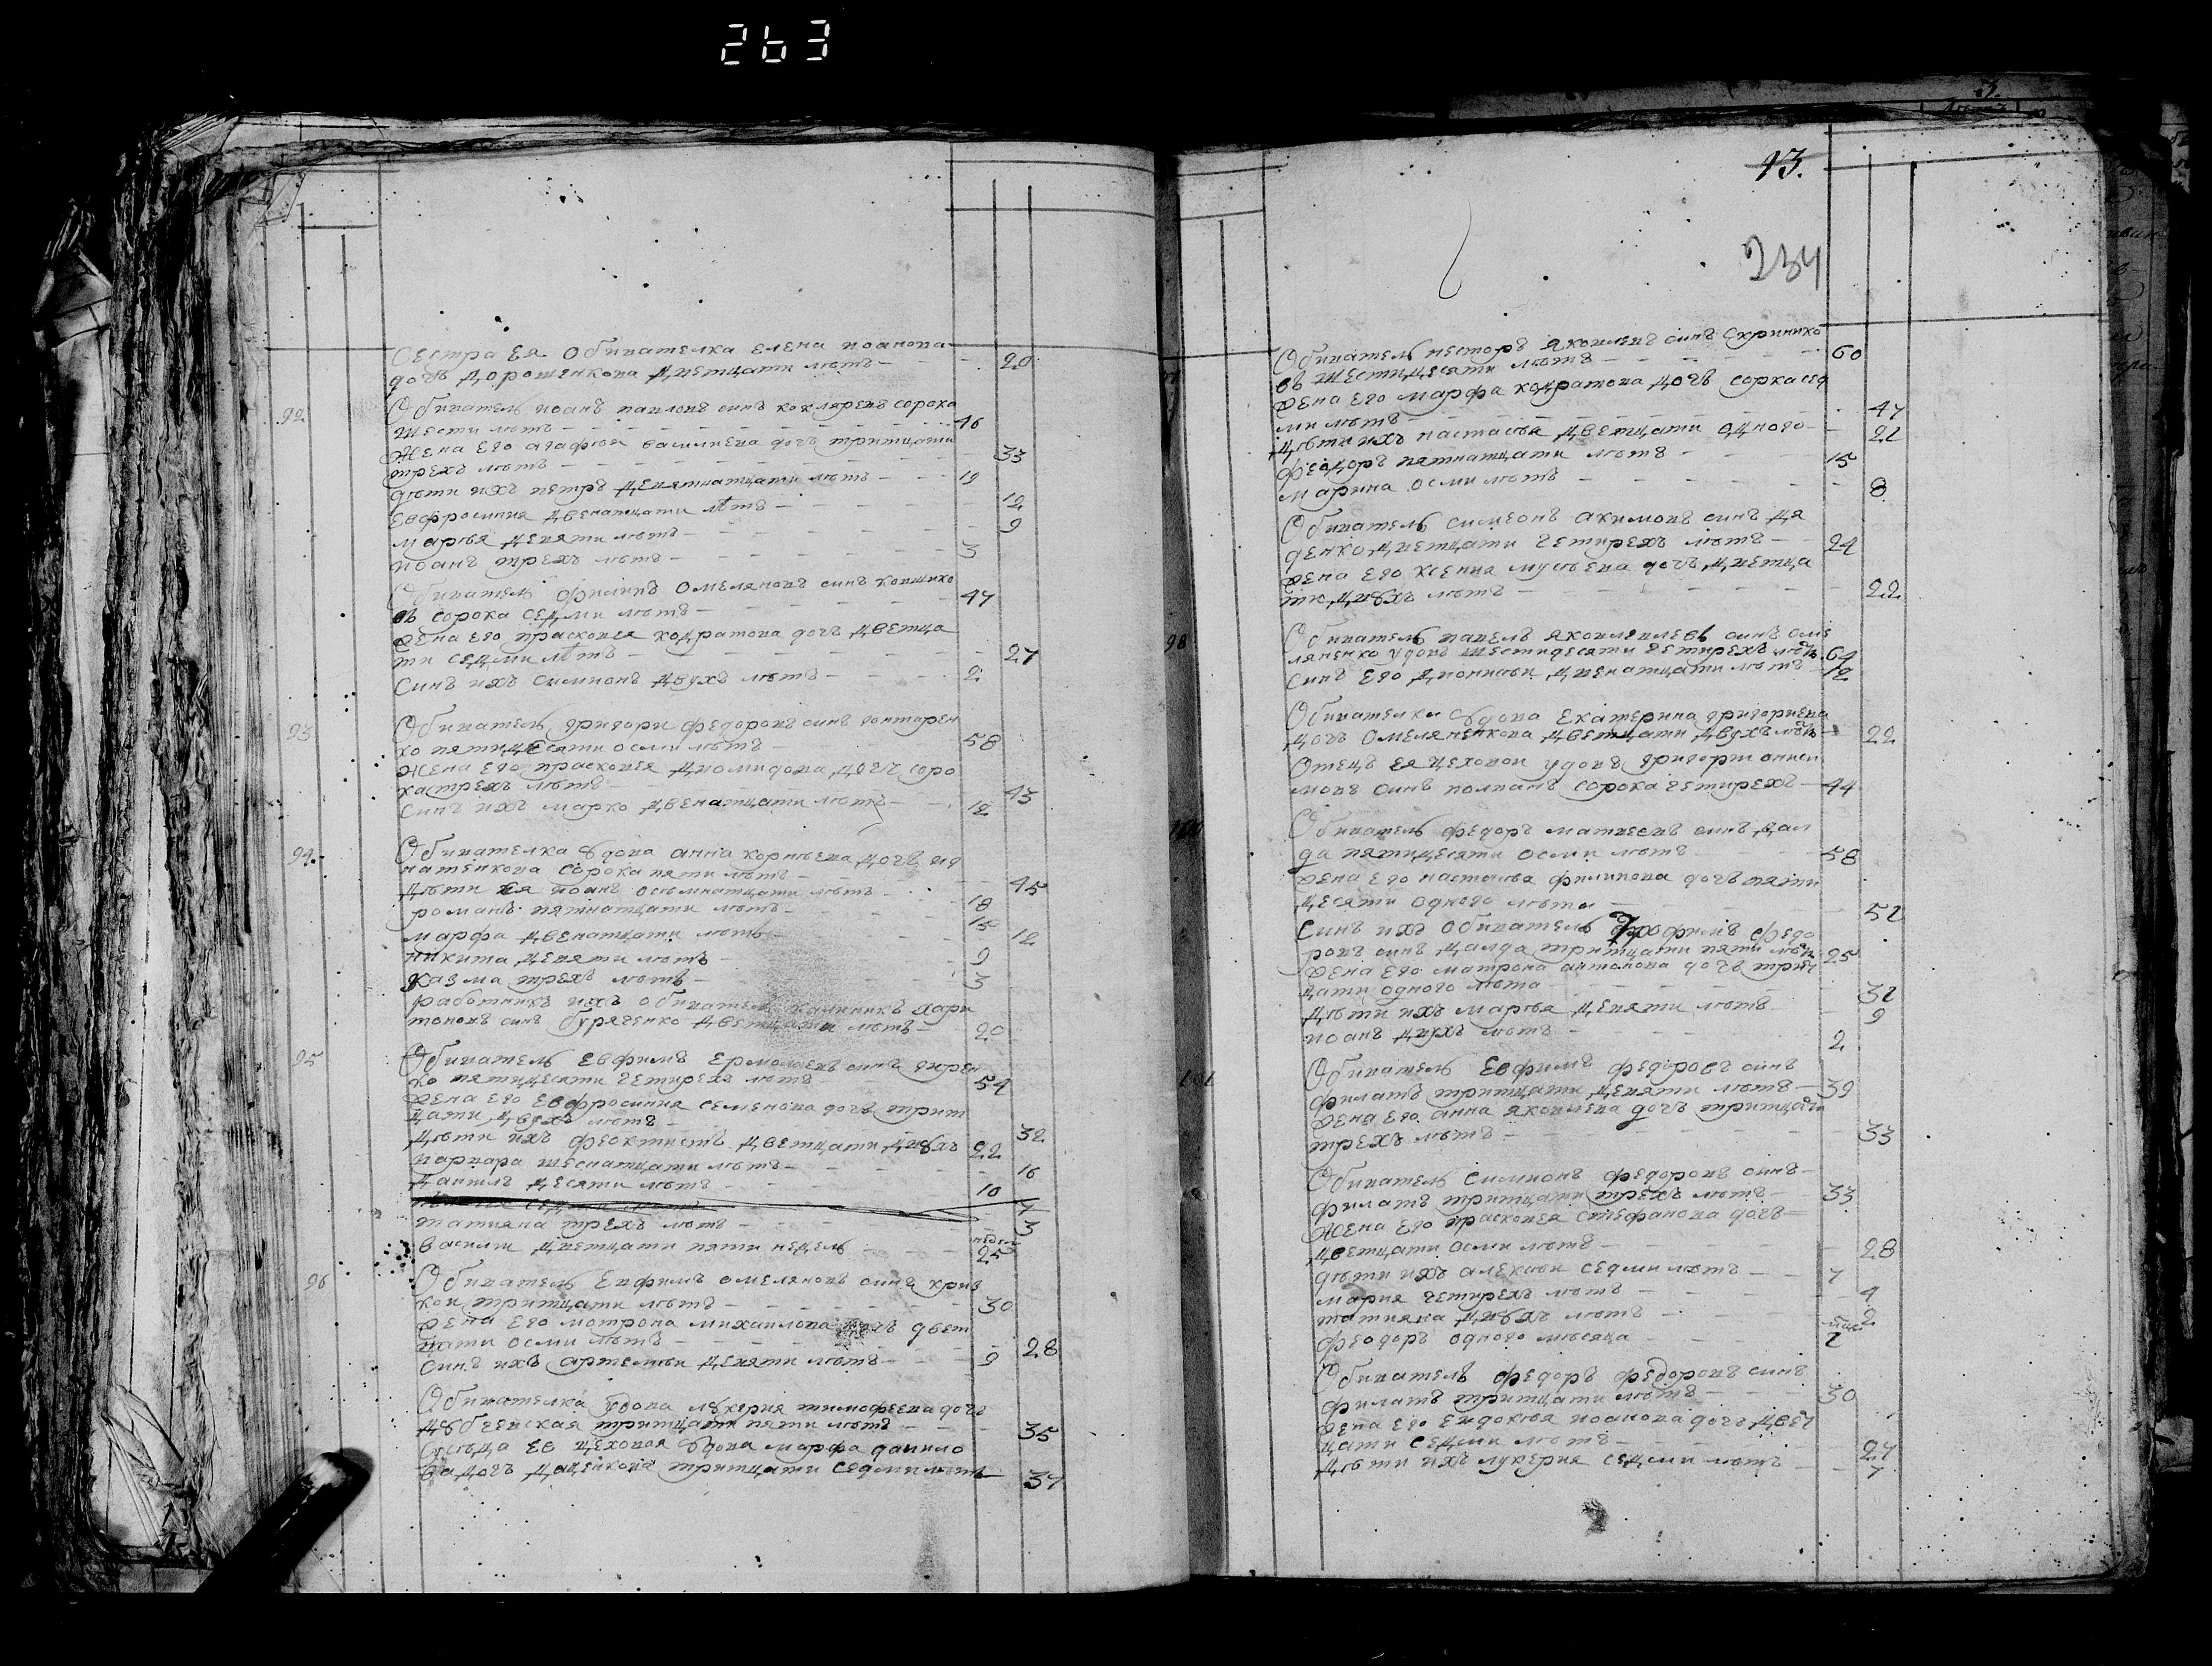 263
Сестра Ея Обивателка Елена иоанова 20
дочъ Дорошенкова Дветцати лѣтъ
92 Обиватель иоанъ павловъ синъ коклярень сорока
шести лѣтъ 46
Жена Его агафия василиева дочъ тритцати
трехъ лѣтъ 33
дѣти ихъ петръ Девятнатцати лѣтъ 19
Евфросиния Двенатцати лѣтъ 12
марья Девяти лѣтъ 9
иоанъ трехъ лѣтъ 3
Обиватель филипъ Омеляновъ синъ
въ сорока седми лѣтъ 47
Жена Его праскопея кодратова дочъ Дветца
ти седми лѣтъ 27
Синъ ихъ симионъ Двухъ лѣтъ 2
93 Обиватель григори федоровъ синъ гонтарен
ко пятидесяти осми лѣтъ 58
Жена Его праскопея Диомидова дочъ соро
ка трехъ лѣтъ 43
Синъ ихъ марко Двенатцати лѣтъ 12
94 Обивателка вдова анна корнѣева дочъ иг
натенкова сорока пяти лѣтъ 45
Дѣти Ея иоанъ осьмнатцати лѣтъ 18
романъ пятнатцати лѣтъ 15
марфа Двенатцати лѣтъ 12
никита Девяти лѣтъ 9
казма трехъ лѣтъ 3
работникъ ихъ обиватель калиникъ хари
тоновъ синъ бураченко Дветцати лѣтъ 20
95 Обиватель Евфимъ Ермолаевъ синъ гирен
ко пятидесяти четирехъ лѣтъ 54
Жена Его Евфросиния семенова дочъ трит
цати Двухъ лѣтъ 32
Дѣти ихъ феоктистъ Дветцати Двухъ 22
варвара шеснатцати лѣтъ 16
Даниль Десяти лѣтъ 10
татияна трехъ лѣтъ 3
василь Дветцати пяти недель недел 25
96 Обиватель Евфимъ омеляновъ синъ крив
кои тритцати лѣтъ 30
Жена Его мотрона михаилова дочъ двет
цати осми лѣтъ 28
Синъ ихъ артемѣи Девяти лѣтъ 9
Обивателка вдова лукерия тимофеева дочъ
тритцати пяти лѣтъ 35
Сусѣда Ев цеховая вдова марфа данило
ва дочъ Даценкова тритцати седми лѣтъ 37
13.
234
Обиватель несторъ Яковлевъ синъ Скринико
въ шестидесяти лѣтъ 60
Жена Его марфа кодратова дочъ сорка сед
ми лѣтъ 47
Дѣти ихъ настасья Дветцати одного 21
феодоръ пятнатцати лѣтъ 15
марина осми лѣтъ 8
Обиватель симеонъ акимовъ синъ Дя
денко Дветцати четирехъ лѣтъ 24
Жена Его ксения дочъ Дветца
ти Двухъ лѣтъ 22
98 Обиватель павелъ синъ оме
ляненко удовъ шестидесяти четирехъ лѣтъ 64
Синъ Его Дионисѣи Двенатцати лѣтъ 12
Обивателка вдова Екатерина григориева
дочъ Омеляненкова Дветцати Двухъ лѣтъ 22
Отецъ Ея цеховои удовъ григори ониси
мовъ синъ сорока четирехъ 44
Обиватель федоръ матвеевъ синъ Дал
да пятидесяти осми лѣтъ 58
Жена Его настасья филипова дочъ пяти
десяти одного лѣта 51
Синъ ихъ Обиватель Трофимъ федо
ровъ синъ Далда тритцати пяти лѣтъ 35
Жена Его матрона антонова дочъ трит
цати одного лѣта 31
Дѣти ихъ марья Девяти лѣтъ 9
иоанъ Двухъ лѣтъ 2
101 Обиватель Евфимъ федоровъ синъ
филатъ тритцати Девяти лѣтъ 39
Жена Его анна яковлева дочъ тритцати
трехъ лѣтъ 33
Обиватель Симионъ федоровъ синъ
филатъ тритцати трехъ лѣтъ 33
Жена Его праскопея стефанова дочъ
Дветцати осми лѣтъ 28
дѣти ихъ алексѣи седми лѣтъ 7
мария четирехъ лѣтъ 4
татияна Двухъ лѣтъ 2
феодоръ одного мѣсяца 1
Обиватель федоръ федоровъ синъ
филатъ тритцати лѣтъ 30
Жена Его Евдокѣя иоанова дочъ Двет
цати седми лѣтъ 27
Дѣти ихъ лукерия седми лѣтъ 7